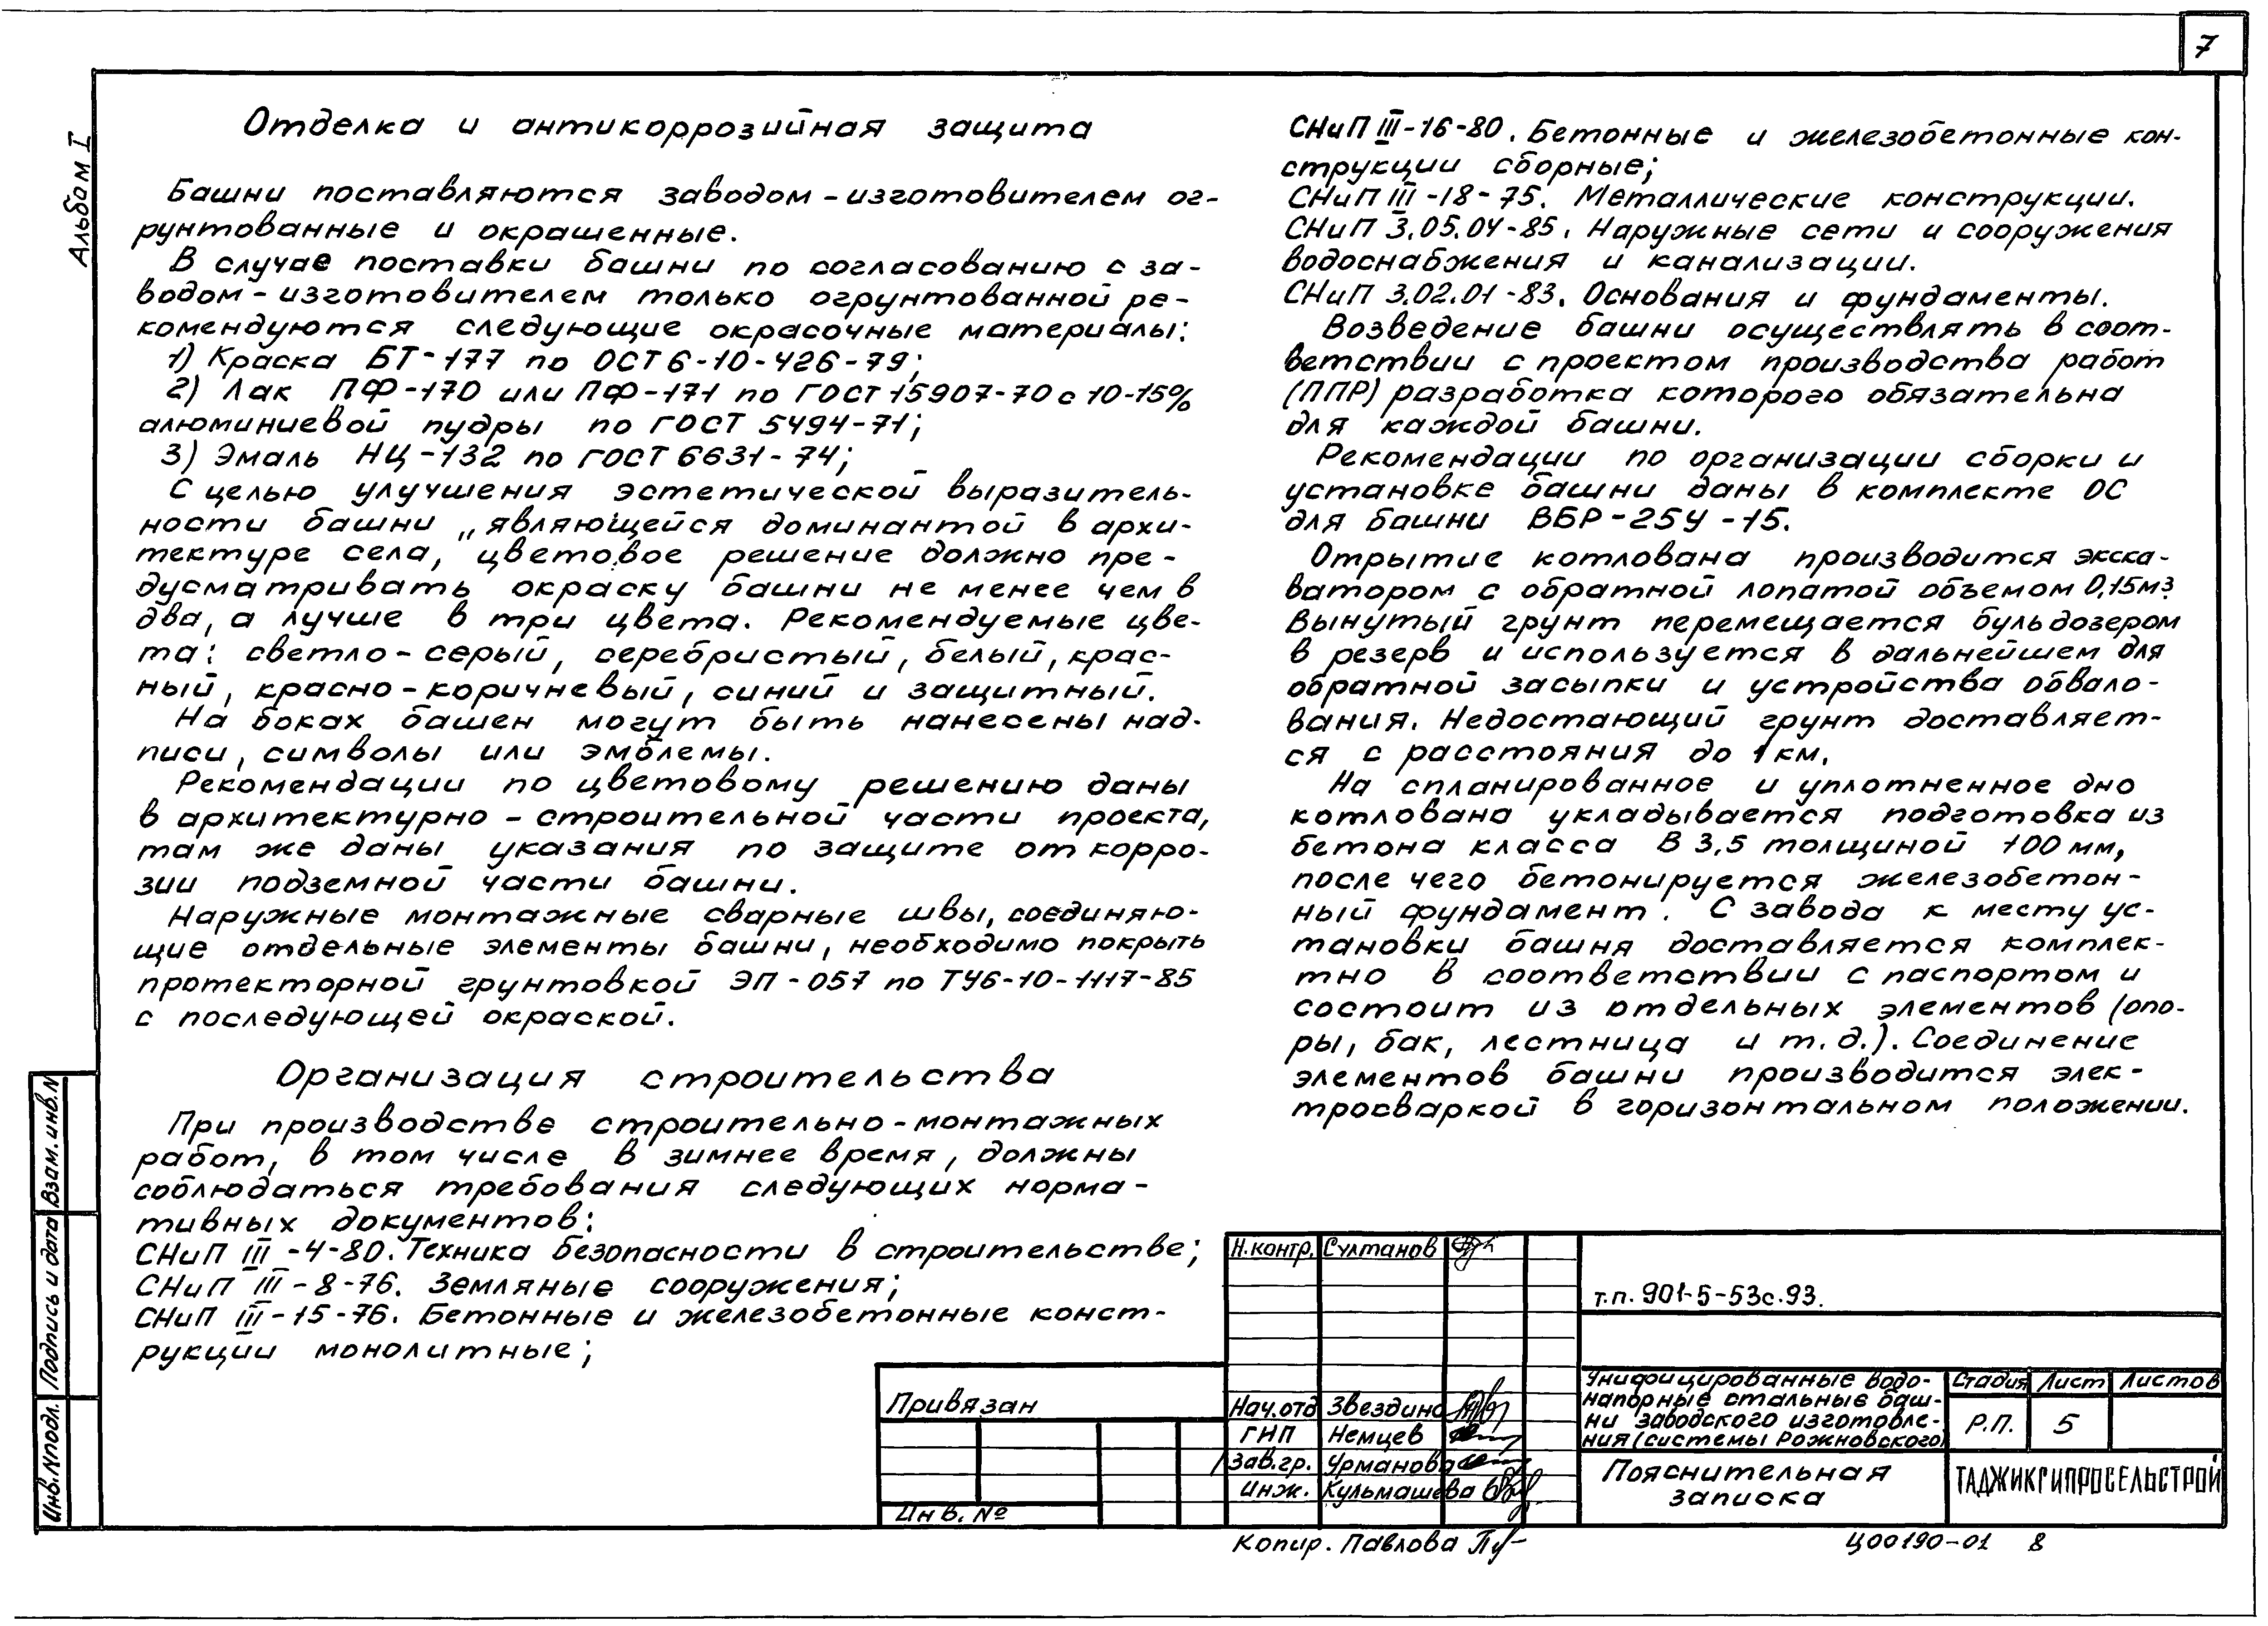 7
Альбом I
Отделка и антикоррозийная защита
Башни поставляются заводом-изготовителем ог-
рунтованные и окрашенные.
В случае поставки башни по согласованию с за-
водом-изготовителем только огрунтованной ре-
комендуются следующие окрасочные материалы:
1) Краска БТ-177 по ОСТ 6-10-426-79;
2) Лак ПФ-170 или ПФ-171 по ГОСТ 15907-70 с 10-15%
алюминиевой пудры по ГОСТ 5494-71;
3) Эмаль НЦ-132 по ГОСТ 6631-74;
С целью улучшения эстетической выразитель-
ности башни „являющейся доминантой в архи-
тектуре села, цветовое решение должно пре-
дусматривать окраску башни не менее чем в
два, а лучше в три цвета. Рекомендуемые цве-
та: светло-серый, серебристый, белый, крас-
ный, красно-коричневый, синий и защитный.
На боках башен могут быть нанесены над-
писи, символы или эмблемы.
Рекомендации по цветовому решению даны
в архитектурно-строительной части проекта,
там же даны указания по защите от корро-
зии подземной части башни.
Наружные монтажные сварные швы, соединяю-
щие отдельные элементы башни, необходимо покрыть
протекторной грунтовкой ЭП-057 по ТУ6-10-1117-85
с последующей окраской.
Организация строительства
При производстве строительно-монтажных
работ, в том числе в зимнее время, должны
соблюдаться требования следующих норма-
тивных документов:
СНиП III-4-80. Техника безопасности в строительстве;
СНиП III-8-76. Земляные сооружения;
СНиП III-15-76. Бетонные и железобетонные конст-
рукции монолитные;
СНиП III-16-80. Бетонные и железобетонные кон-
струкции сборные;
СНиП III-18-75. Металлические конструкции.
СНиП 3.05.04-85. Наружные сети и сооружения
водоснабжения и канализации.
СНиП 3.02.01-83. Основания и фундаменты.
Возведение башни осуществлять в соот-
ветствии с проектом производства работ
(ППР) разработка которого обязательна
для каждой башни.
Рекомендации по организации сборки и
установке башни даны в комплекте ОС
для башни ВБР-25У-15.
Отрытие котлована производится экска-
ватором с обратной лопатой объемом 0,15м3.
Вынутый грунт перемещается бульдозером
в резерв и используется в дальнейшем для
обратной засыпки и устройства обвало-
вания. Недостающий грунт доставляет-
ся с расстояния до 1 км.
На спланированное и уплотненное дно
котлована укладывается подготовка из
бетона класса В 3,5 толщиной 100 мм,
после чего бетонируется железобетон-
ный фундамент. С завода к месту ус-
тановки башня доставляется комплек-
тно в соответствии с паспортом и
состоит из отдельных элементов (опо-
ры, бак, лестница и т.д.). Соединение
элементов башни производится элек-
тросваркой в горизонтальном положении.
Инв.Nподл. Подпись и дата Взам.инв.N
Привязан
Инв. №
Н.контр. Султанов
Нач.отд Звездино
ГНП Немцев
Зав.гр. Урманова
Инж. Кульмашева
т.п. 901-5-53с.93.
Унифицированные водо-
напорные стальные баш-
ни заводского изготовле-
ния (системы Рожновского)
Стадия Лист Листов
Р.П. 5
Пояснительная
записка
ТАДЖИКГИПРОСЕЛЬСТРОЙ
Копир. Павлова
Ц00190-01 8